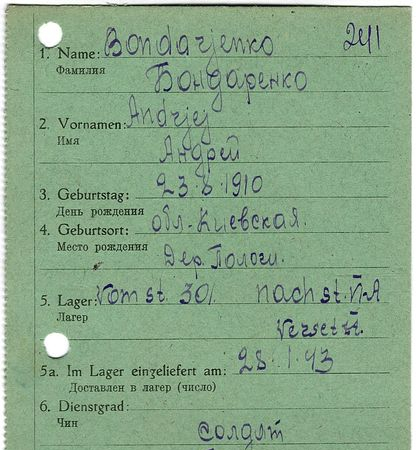 2411
1. Name: Bondarjenko
Фамилия
Бондаренко
2. Vornamen: Andrjej
Имя
Андрей
3. Geburtstag: 23.8.1910
День рождения
4. Geburtsort: обл-Киевская.
Место рождения
Дер. Пологи.
5. Lager: Vom st. 301 nach st. VI-A
Лагерь
Versetzt.
5a. Im Lager eingeliefert am: 28.1.43
Доставлен в лагер (число)
6. Dienstgrad:
Чин
солдат